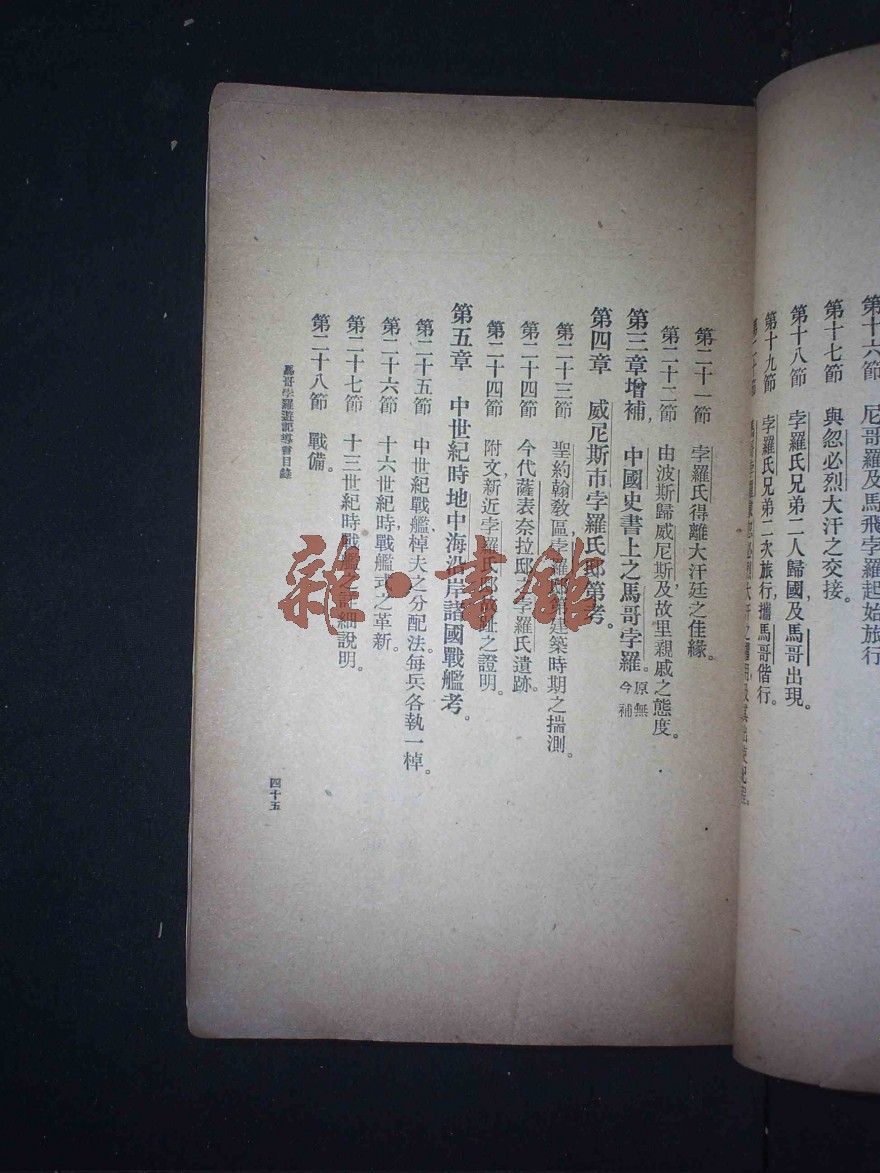 第十六節　尼哥羅及馬飛孛羅起始旅行
第十七節　與忽必烈大汗之交接。
第十八節　孛羅氏兄弟二人歸國及馬哥出現。
第十九節　孛羅氏兄弟二次旅行，攜馬哥偕行。
第二十一節　孛羅氏得離大汗廷之佳緣。
第二十二節　由波斯歸威尼斯及故里親戚之態度。
第三章增補　中國史書上之馬哥孛羅。原無今補
第四章　威尼斯市孛羅氏邸第考。
第二十三節　聖約翰教區孛羅邸第建築時期之揣測。
第二十四節　今代薩表奈拉邸孛羅氏遺跡。
第二十四節　附文新近孛羅氏邸故址之證明。
第五章　中世紀時地中海沿岸諸國戰艦考。
第二十五節　中世紀戰艦棹夫之分配法每兵各執一棹。
第二十六節　十六世紀時，戰艦式之革新。
第二十七節　十三世紀時戰艦之詳細說明。
第二十八節　戰備。
馬哥孛羅遊記導言目錄
四十五
雜·書館